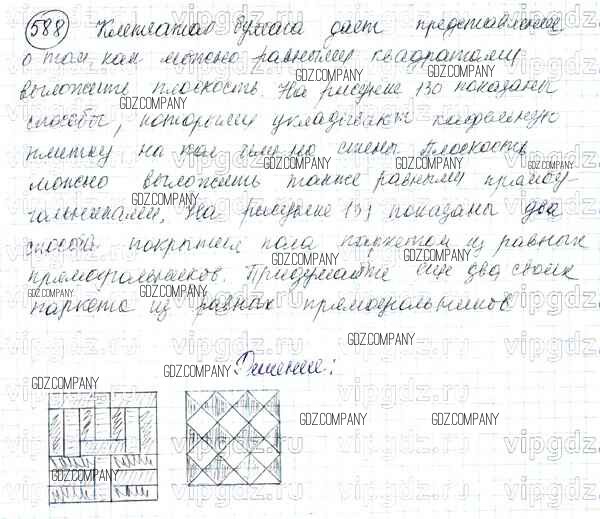 588 Клетчатая бумага дает представление
о том, как можно равными квадратами
выложить плоскость. На рисунке 130 показаны
способы, которыми укладывают кафельную
плитку на пол или на стены. Плоскость
можно выложить также равными прямоу-
гольниками. На рисунке 131 показаны два
способа покрытия пола паркетом из равных
прямоугольников. Придумайте еще два своих
паркета из равных прямоугольников
Решение:
GDZ.COMPANY
vipgdz.ru